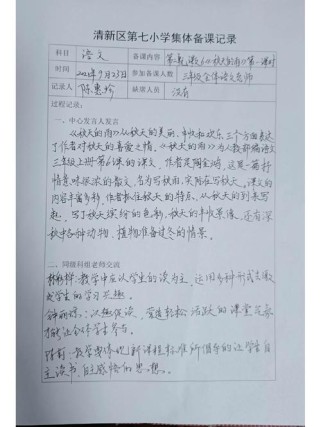 清新区第七小学集体备课记录
科目 语文 备课内容 第二单元 第6《秋天的雨》第一课时
时间 2021年9月23日 参加备课人数 三年级全体语文老师
记录人 陈惠珍 缺席人员 没有
过程记录:
一、中心发言人发言
《秋天的雨》从秋天的美丽、丰收和欢乐三个方面表达
了作者对秋天的喜爱之情,《秋天的雨》为人教部编语文
三年级上册第6课的课文,作者是陶金鸿,这是一篇抒
情意味很浓的散文,名为写秋雨,实际在写秋天。课文的
内容丰富多彩,作者抓住秋天的特点,从秋天的到来写
起,写了秋天缤纷的色彩,秋天的丰收景象,还有深
秋中各种动物、植物准备过冬的情景。
二、同级科组老师交流
教学中应以学生的读为主,运用多种形式去激
发学生的学习兴趣。
以趣促读,营造轻松活跃的课堂氛围
让全体学生参与。
教学要体现新课程标准所倡导的让学生自
主读书,自主感悟的思想。